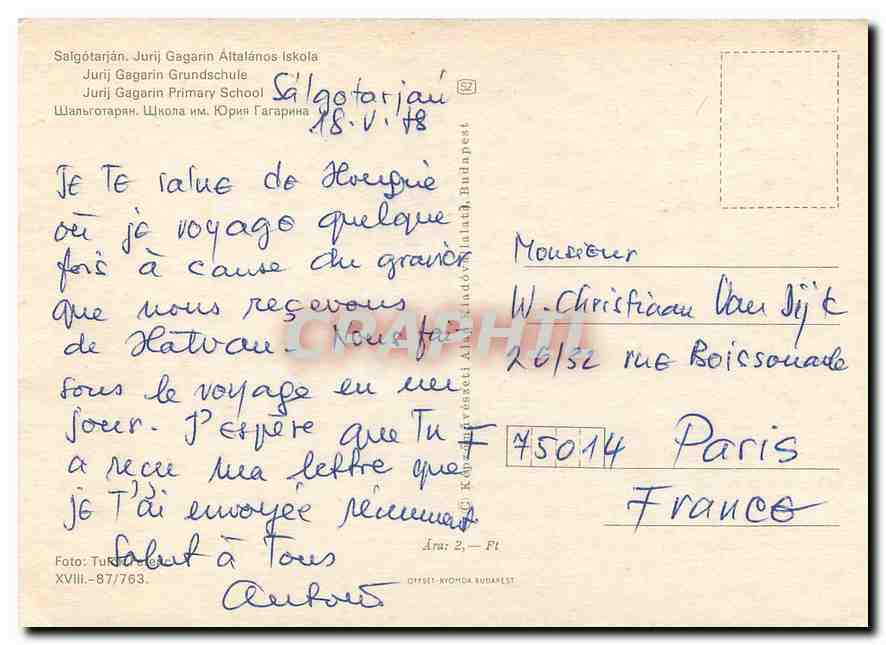 Salgótarján. Jurij Gagarin Általános Iskola
Jurij Gagarin Grundschule
Jurij Gagarin Primary School
Шальготарян. Щкола им. Юрия Гагарина
Sálgotarján
18.V.78
Je Te salue de Hongrie
où je voyage quelque
fois à cause du gravier
que nous reçevons
de Hatvan. Nous fai
sons le voyage en un
jour. J'espère que Tu
a reçu ma lettre que
je T'ai envoyée récemment
Salut à Tous
Foto:
XVIII.-87/763.
SZ
(C) Képzőművészeti Alap Kiadóvállalata, Budapest
Ára: 2,— Ft
OFFSET-NYOMDA BUDAPEST
Monsieur
W-Christiaan Van Dijk
26/32 rue Boissonade
F 75014 Paris
France
CRAPHTI